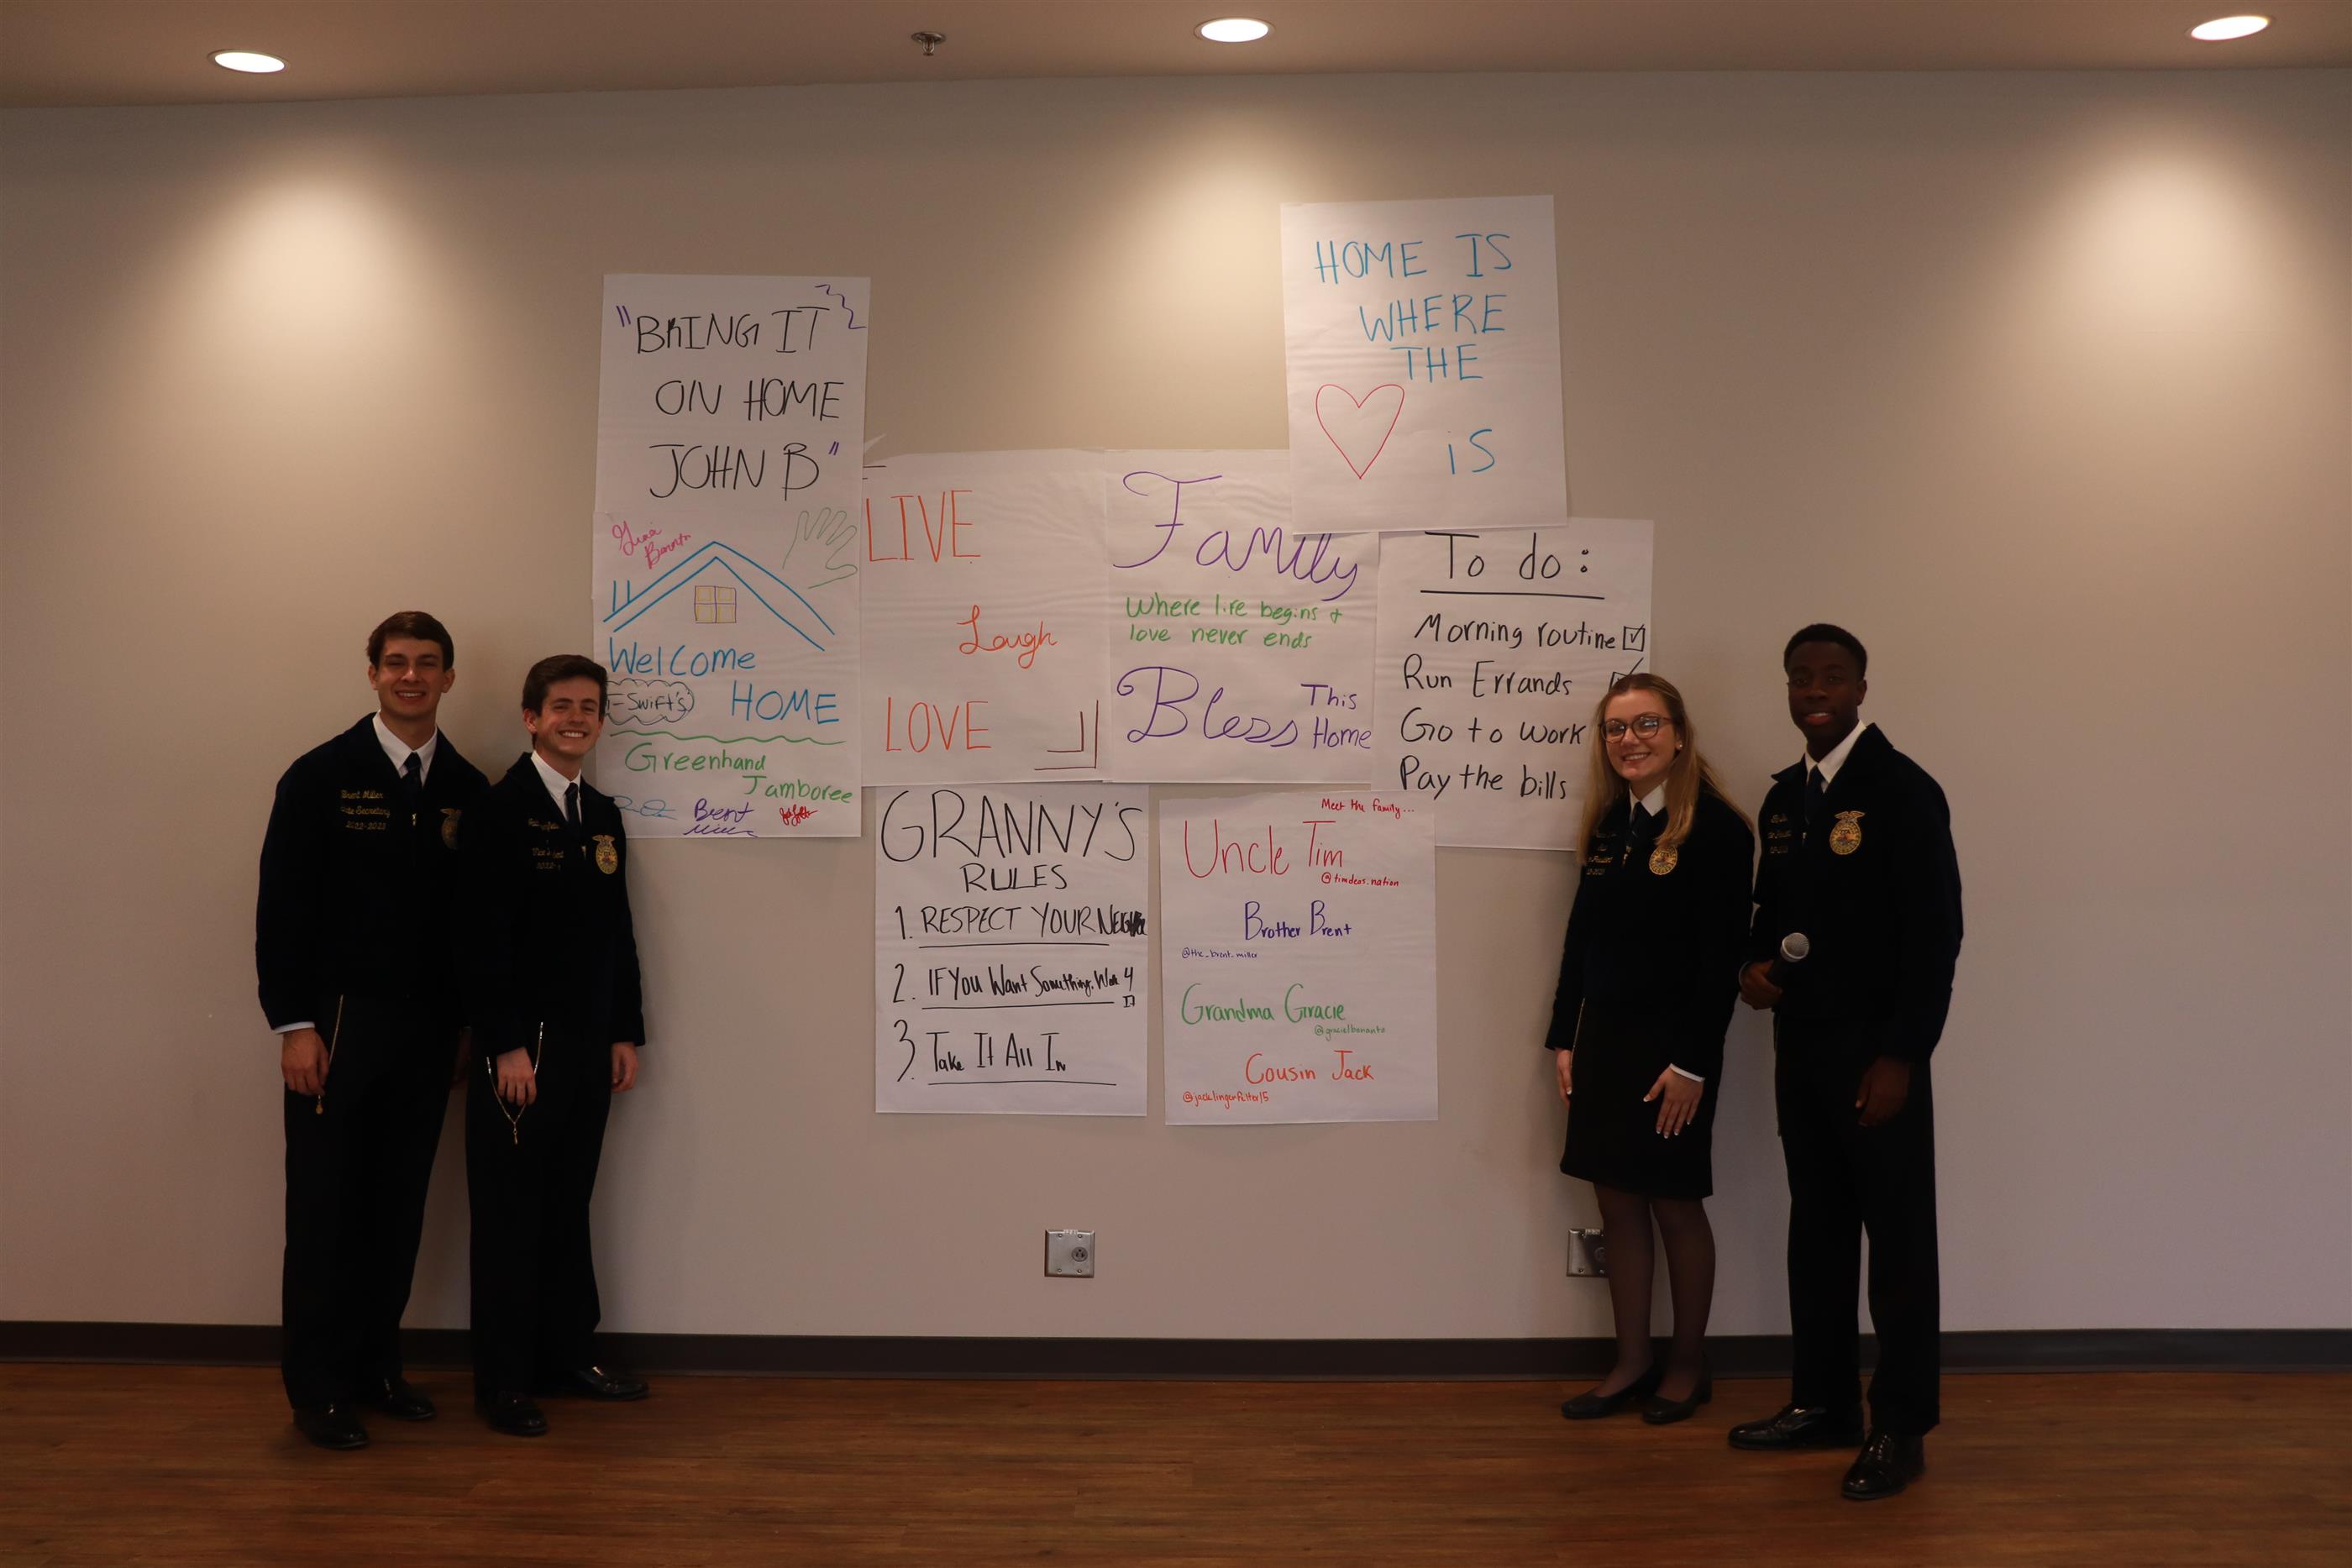 "BRING IT
ON HOME
JOHN B"
Welcome
T-Swift's HOME
Greenhand
Jamboree
Brent
LIVE
Laugh
LOVE
Family
Where life begins +
love never ends
Bless This
Home
HOME IS
WHERE
THE
is
To do:
Morning routine
Run Errands
Go to work
Pay the bills
GRANNY'S
RULES
1. RESPECT YOUR
2. IF YOU Want Something, Work 4
It
3. Take It All In
Meet the family...
Uncle Tim
@timdeas.nation
Brother Brent
@the_brent_miller
Grandma Gracie
Cousin Jack
Brent Miller
State Secretary
2022-2023